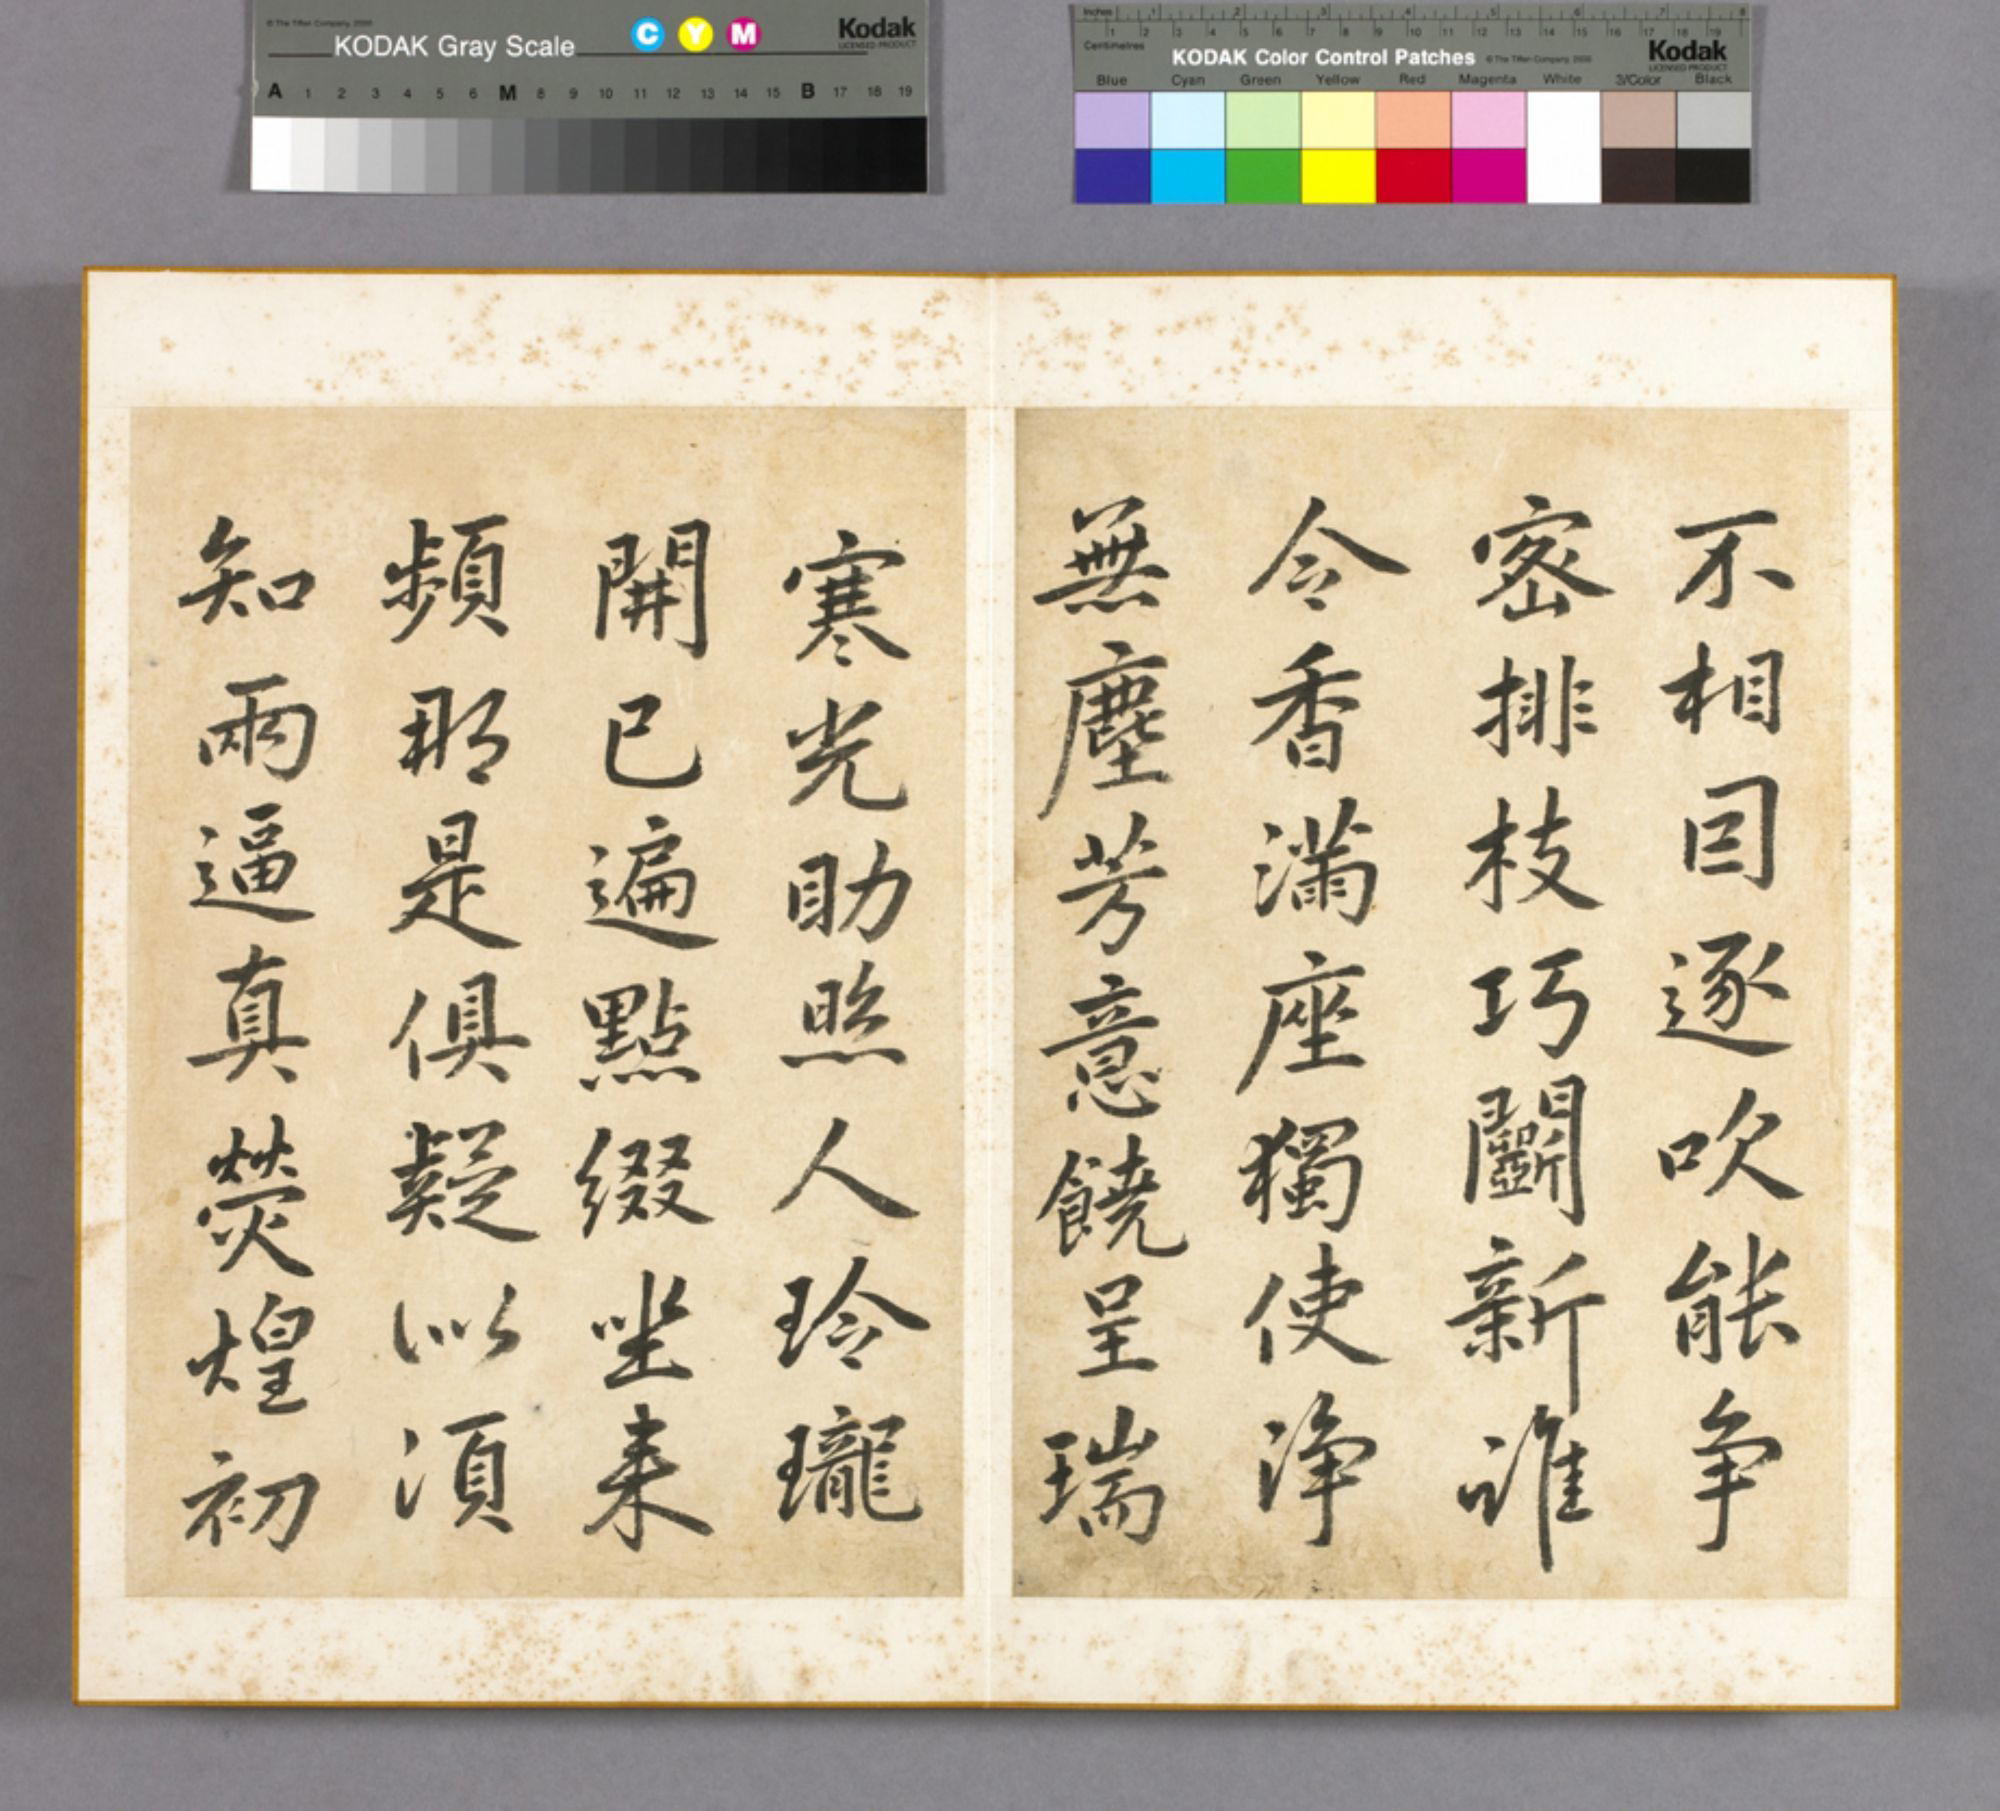 © The Tiffen Company, 2000
KODAK Gray Scale
C Y M
Kodak
LICENSED PRODUCT
A 1 2 3 4 5 6 M 8 9 10 11 12 13 14 15 B 17 18 19
Inches 1 2 3 4 5 6 7 8
Centimetres 1 2 3 4 5 6 7 8 9 10 11 12 13 14 15 16 17 18 19
KODAK Color Control Patches
© The Tiffen Company, 2000
Kodak
LICENSED PRODUCT
Blue Cyan Green Yellow Red Magenta White 3/Color Black
不相因逐吹能争
密排枝巧鬭新誰
令香滿座獨使淨
無塵芳意饒呈瑞
寒光助照人玲瓏
開已遍點綴坐来
頻那是俱疑似湏
知兩逼真熒煌初